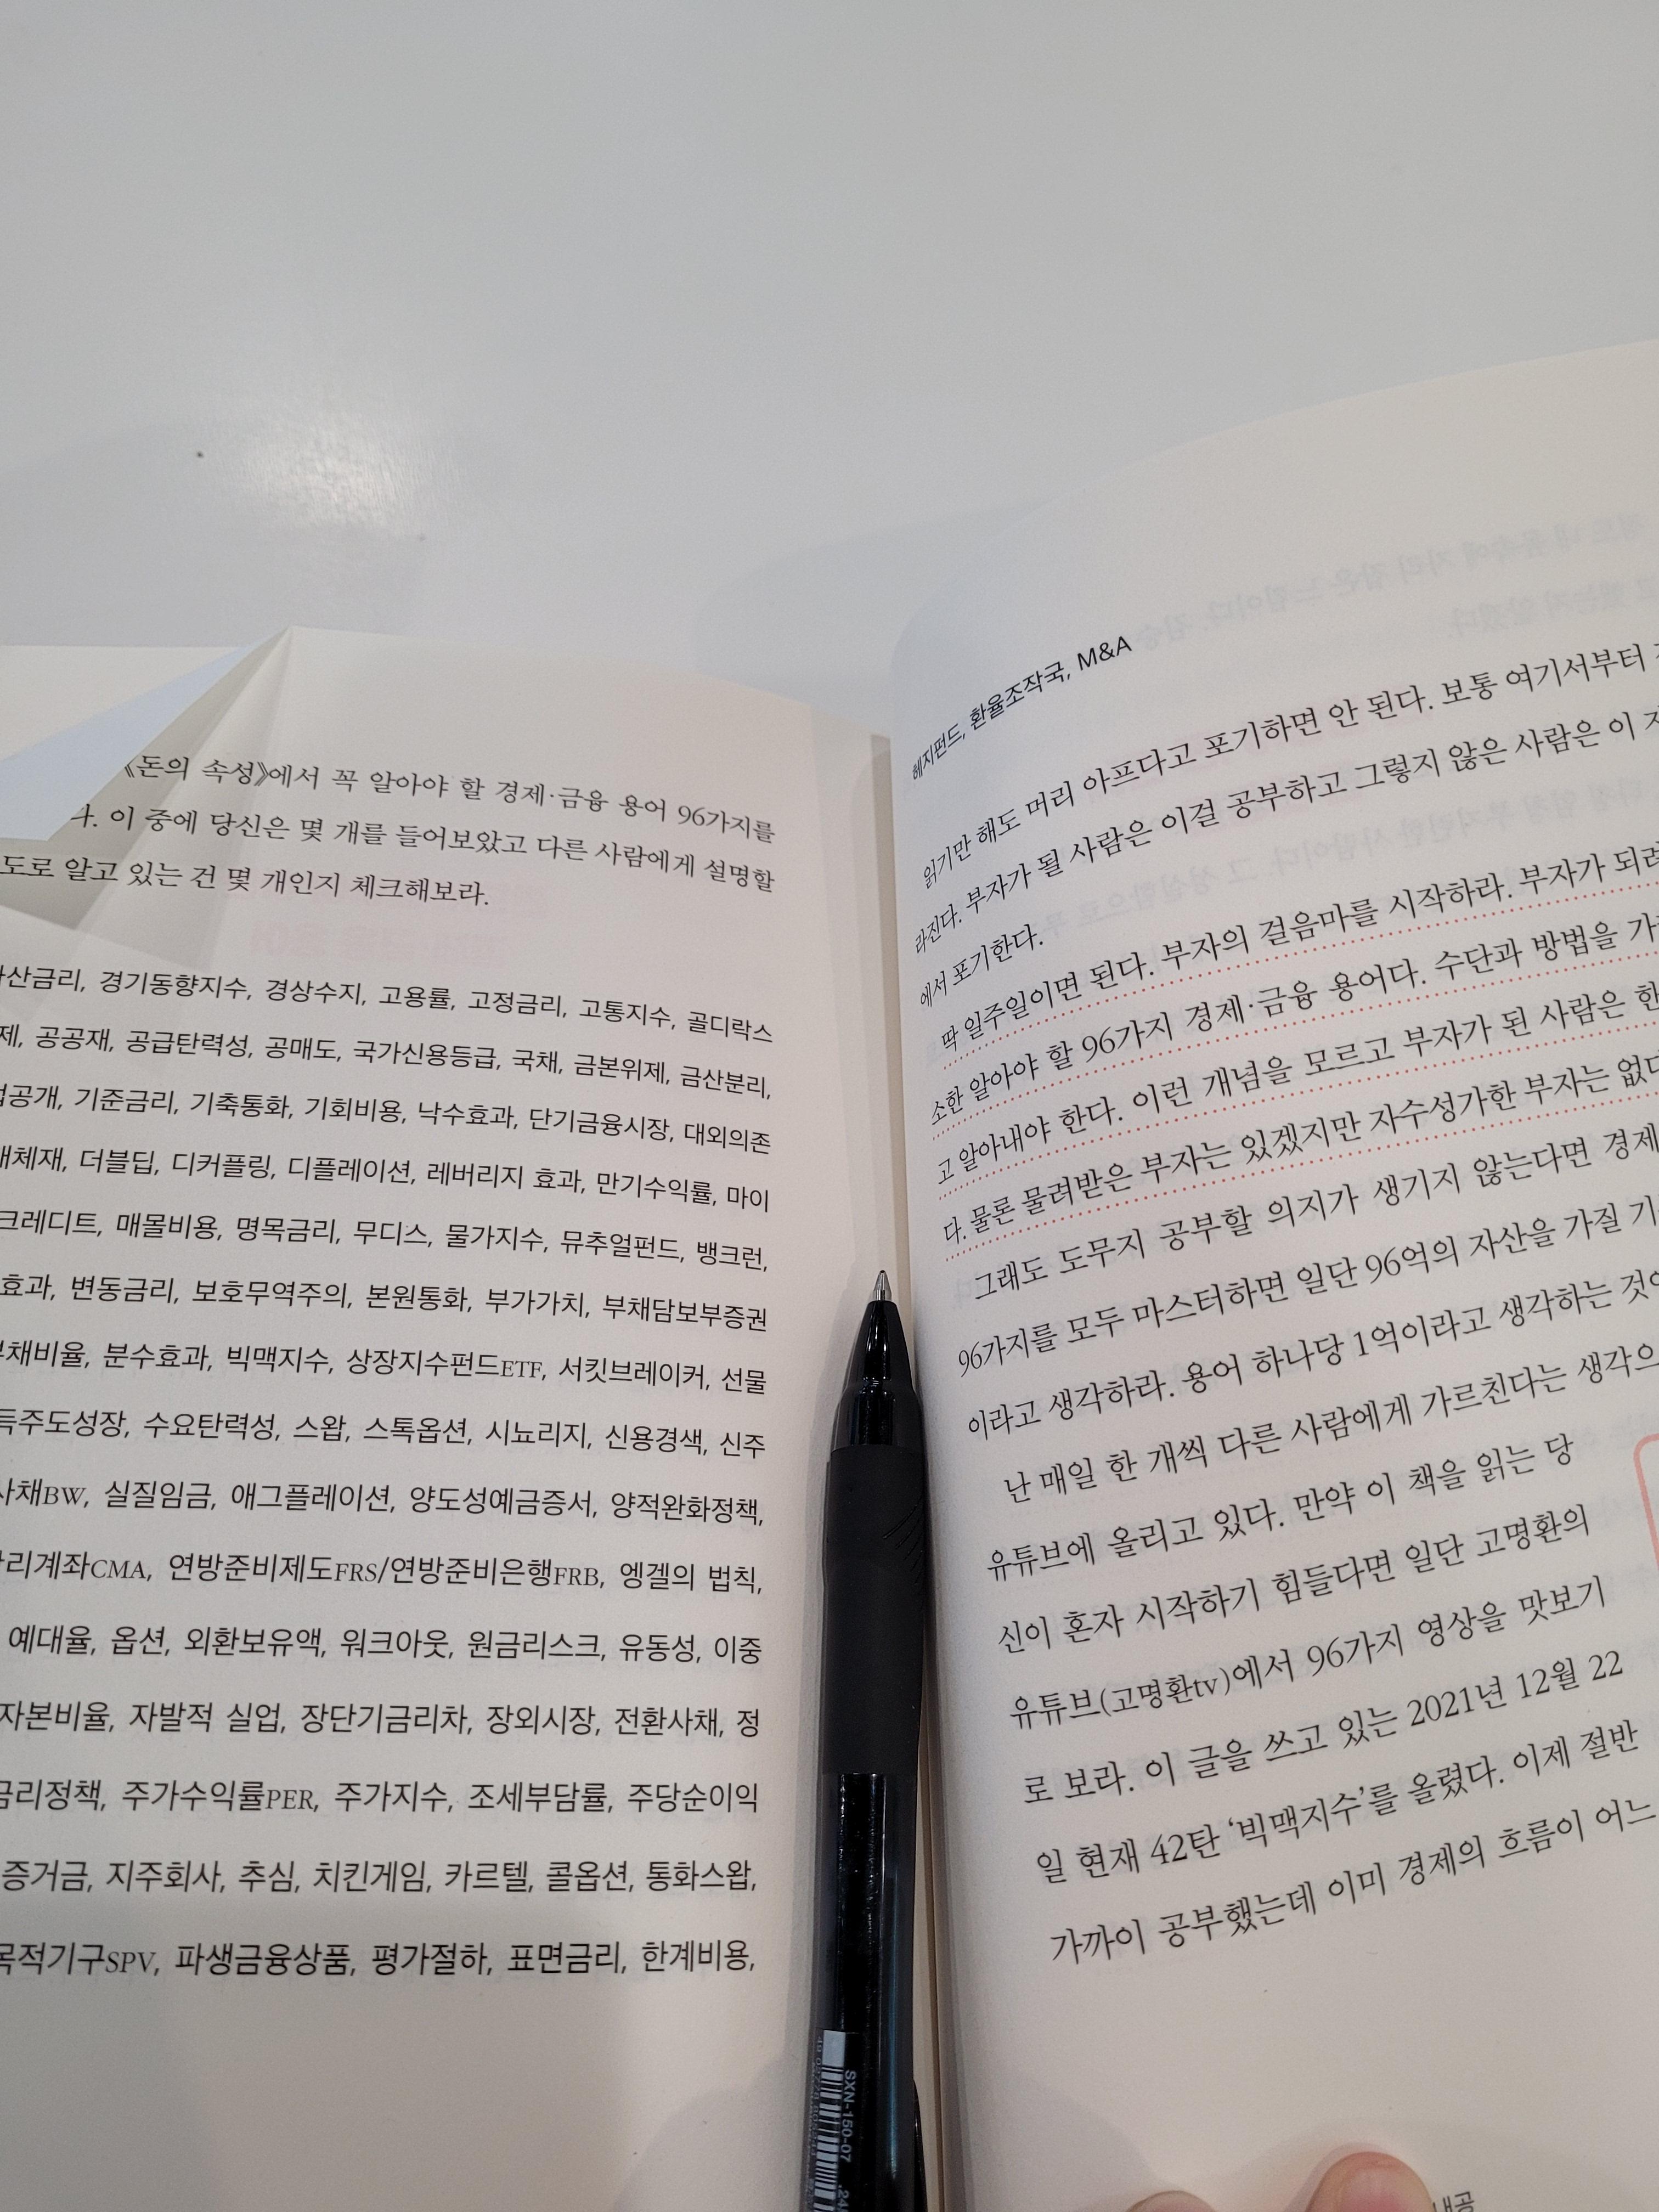 《돈의 속성》에서 꼭 알아야 할 경제·금융 용어 96가지를
다. 이 중에 당신은 몇 개를 들어보았고 다른 사람에게 설명할
도로 알고 있는 건 몇 개인지 체크해보라.
산금리, 경기동향지수, 경상수지, 고용률, 고정금리, 고통지수, 골디락스
제, 공공재, 공급탄력성, 공매도, 국가신용등급, 국채, 금본위제, 금산분리,
공개, 기준금리, 기축통화, 기회비용, 낙수효과, 단기금융시장, 대외의존
대체재, 더블딥, 디커플링, 디플레이션, 레버리지 효과, 만기수익률, 마이
크레디트, 매몰비용, 명목금리, 무디스, 물가지수, 뮤추얼펀드, 뱅크런,
효과, 변동금리, 보호무역주의, 본원통화, 부가가치, 부채담보부증권
부채비율, 분수효과, 빅맥지수, 상장지수펀드ETF, 서킷브레이커, 선물
득주도성장, 수요탄력성, 스왑, 스톡옵션, 시뇨리지, 신용경색, 신주
사채BW, 실질임금, 애그플레이션, 양도성예금증서, 양적완화정책,
리계좌CMA, 연방준비제도FRS/연방준비은행FRB, 엥겔의 법칙,
예대율, 옵션, 외환보유액, 워크아웃, 원금리스크, 유동성, 이중
자본비율, 자발적 실업, 장단기금리차, 장외시장, 전환사채, 정
금리정책, 주가수익률PER, 주가지수, 조세부담률, 주당순이익
증거금, 지주회사, 추심, 치킨게임, 카르텔, 콜옵션, 통화스왑,
목적기구SPV, 파생금융상품, 평가절하, 표면금리, 한계비용,
헤지펀드, 환율조작국, M&A
읽기만 해도 머리 아프다고 포기하면 안 된다. 보통 여기서부터
라진다. 부자가 될 사람은 이걸 공부하고 그렇지 않은 사람은 이
에서 포기한다.
딱 일주일이면 된다. 부자의 걸음마를 시작하라. 부자가 되려
소한 알아야 할 96가지 경제·금융 용어다. 수단과 방법을 가
고 알아내야 한다. 이런 개념을 모르고 부자가 된 사람은 한
다. 물론 물려받은 부자는 있겠지만 자수성가한 부자는 없다
그래도 도무지 공부할 의지가 생기지 않는다면 경제
96가지를 모두 마스터하면 일단 96억의 자산을 가질 기
이라고 생각하라. 용어 하나당 1억이라고 생각하는 것이
난 매일 한 개씩 다른 사람에게 가르친다는 생각으
유튜브에 올리고 있다. 만약 이 책을 읽는 당
신이 혼자 시작하기 힘들다면 일단 고명환의
유튜브(고명환tv)에서 96가지 영상을 맛보기
로 보라. 이 글을 쓰고 있는 2021년 12월 22
일 현재 42탄 '빅맥지수'를 올렸다. 이제 절반
가까이 공부했는데 이미 경제의 흐름이 어느
SXN-150-07